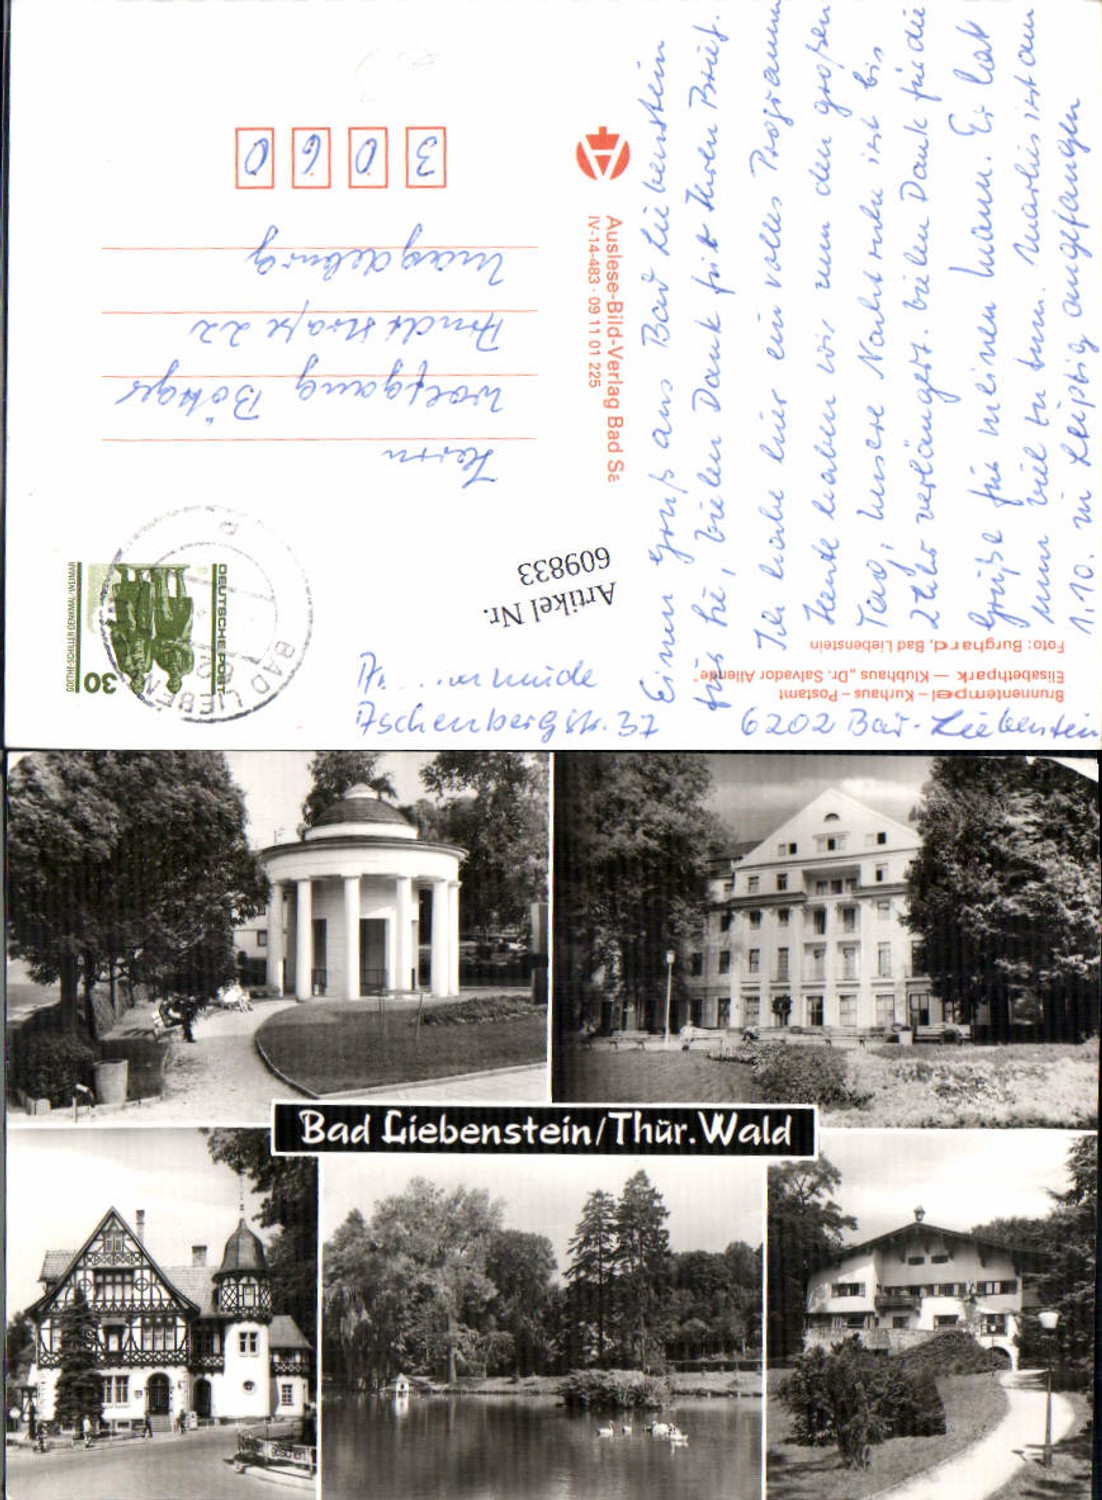 Einen Gruß aus Bad Liebenstein
für Sie, vielen Dank für Ihren Brief.
Ich habe hier ein volles Programm
Heute haben wir nun den großen
Tag, unsere Nachtruhe ist bis
2 Uhr verlängert. Vielen Dank für die
Grüße für meinen Mann. Er hat
nun viel zu tun. Marlies ist am
1.10. in Leipzig angefangen
6202 Bad-Liebenstein
Aschenbergstr. 37
Artikel Nr.
609833
DEUTSCHE POST
GOETHE-SCHILLER-DENKMAL/WEIMAR
30
BAD LIEBEN
Herrn
Wolfgang Böttger
Arndtstraße 22
Magdeburg
3 0 6 0
Auslese-Bild-Verlag Bad Sa
IV-14-483 · 09 11 01 225
Brunnentempel – Kurhaus – Postamt
Elisabethpark — Klubhaus „Dr. Salvador Allende"
Foto: Burghard, Bad Liebenstein
Bad Liebenstein/Thür. Wald